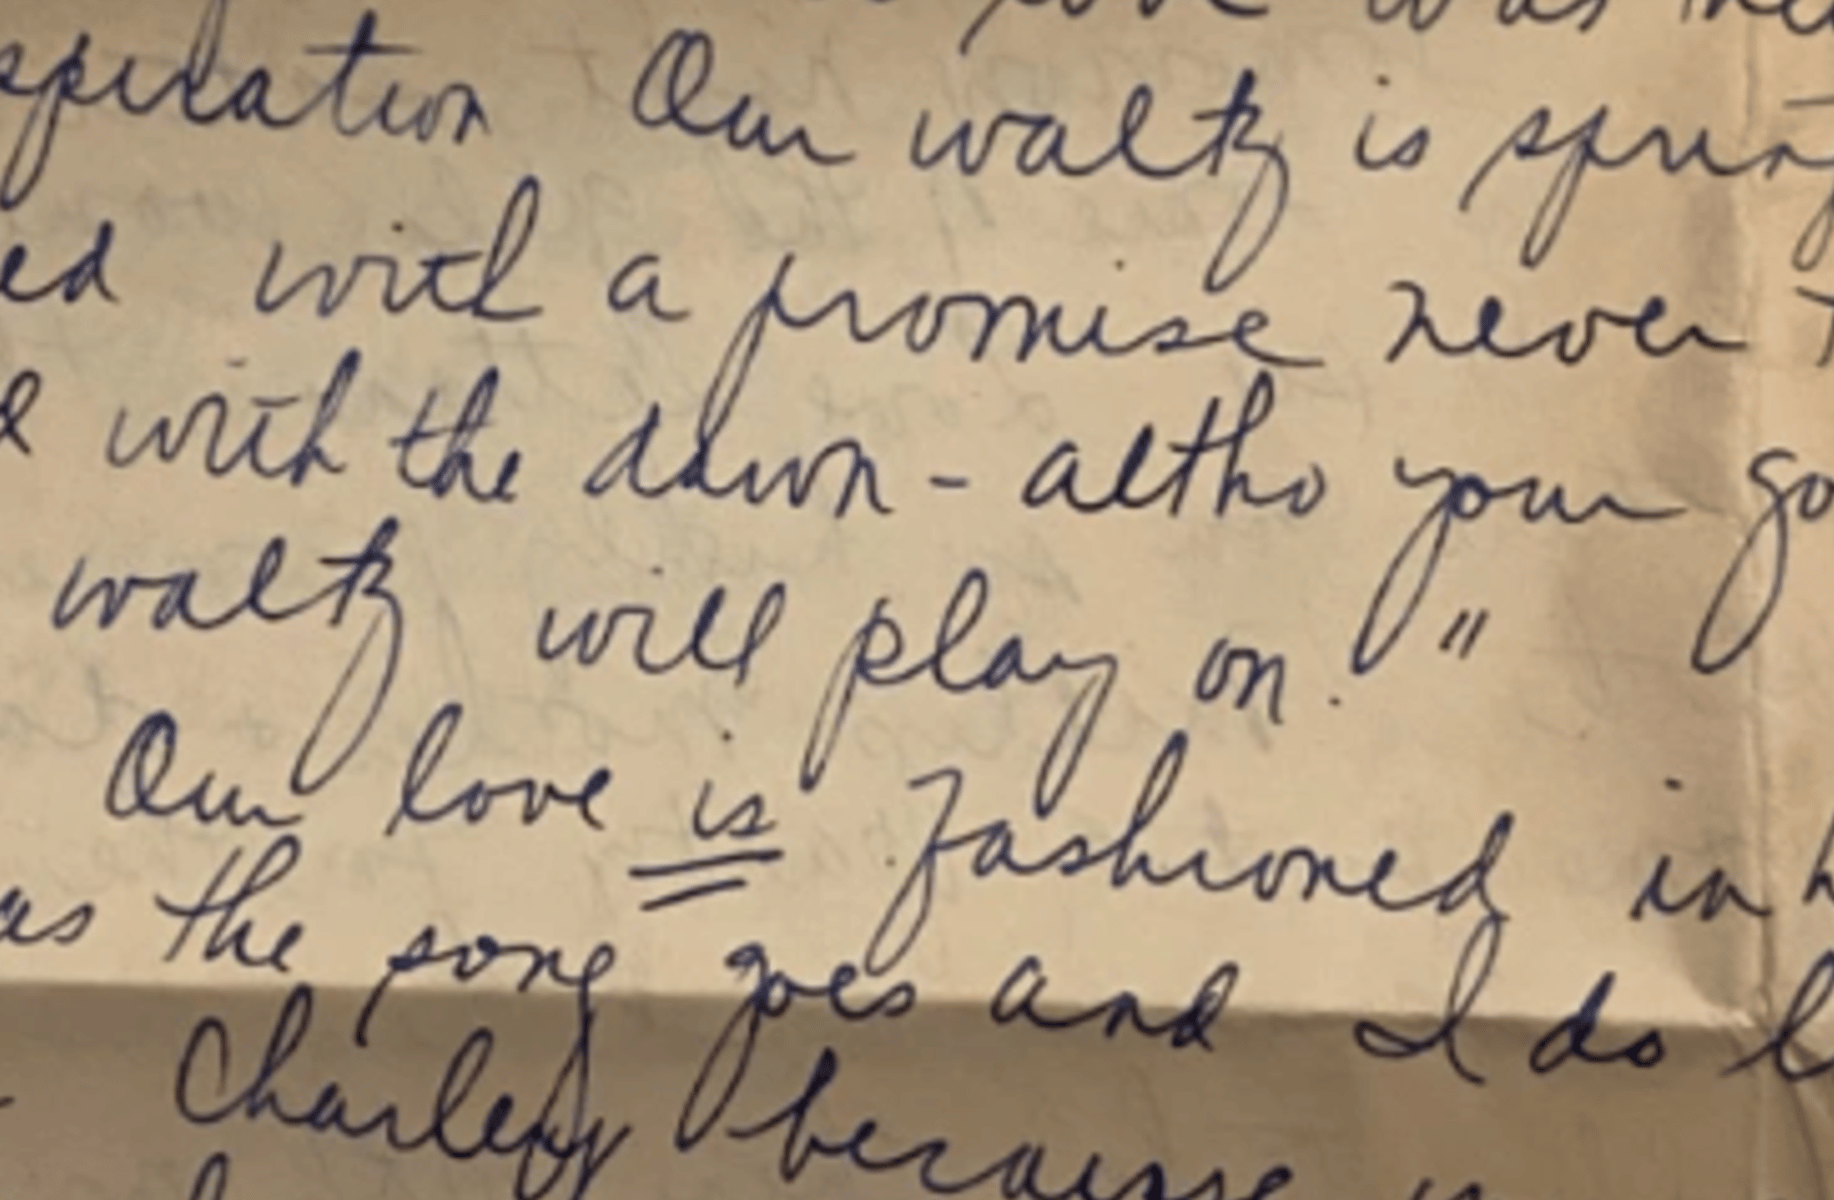 was
spiration Our waltz is
ed with a promise never
with the dawn - altho your go
waltz will play on."
Our love is fashioned in h
as the song goes and I do l
Charley because